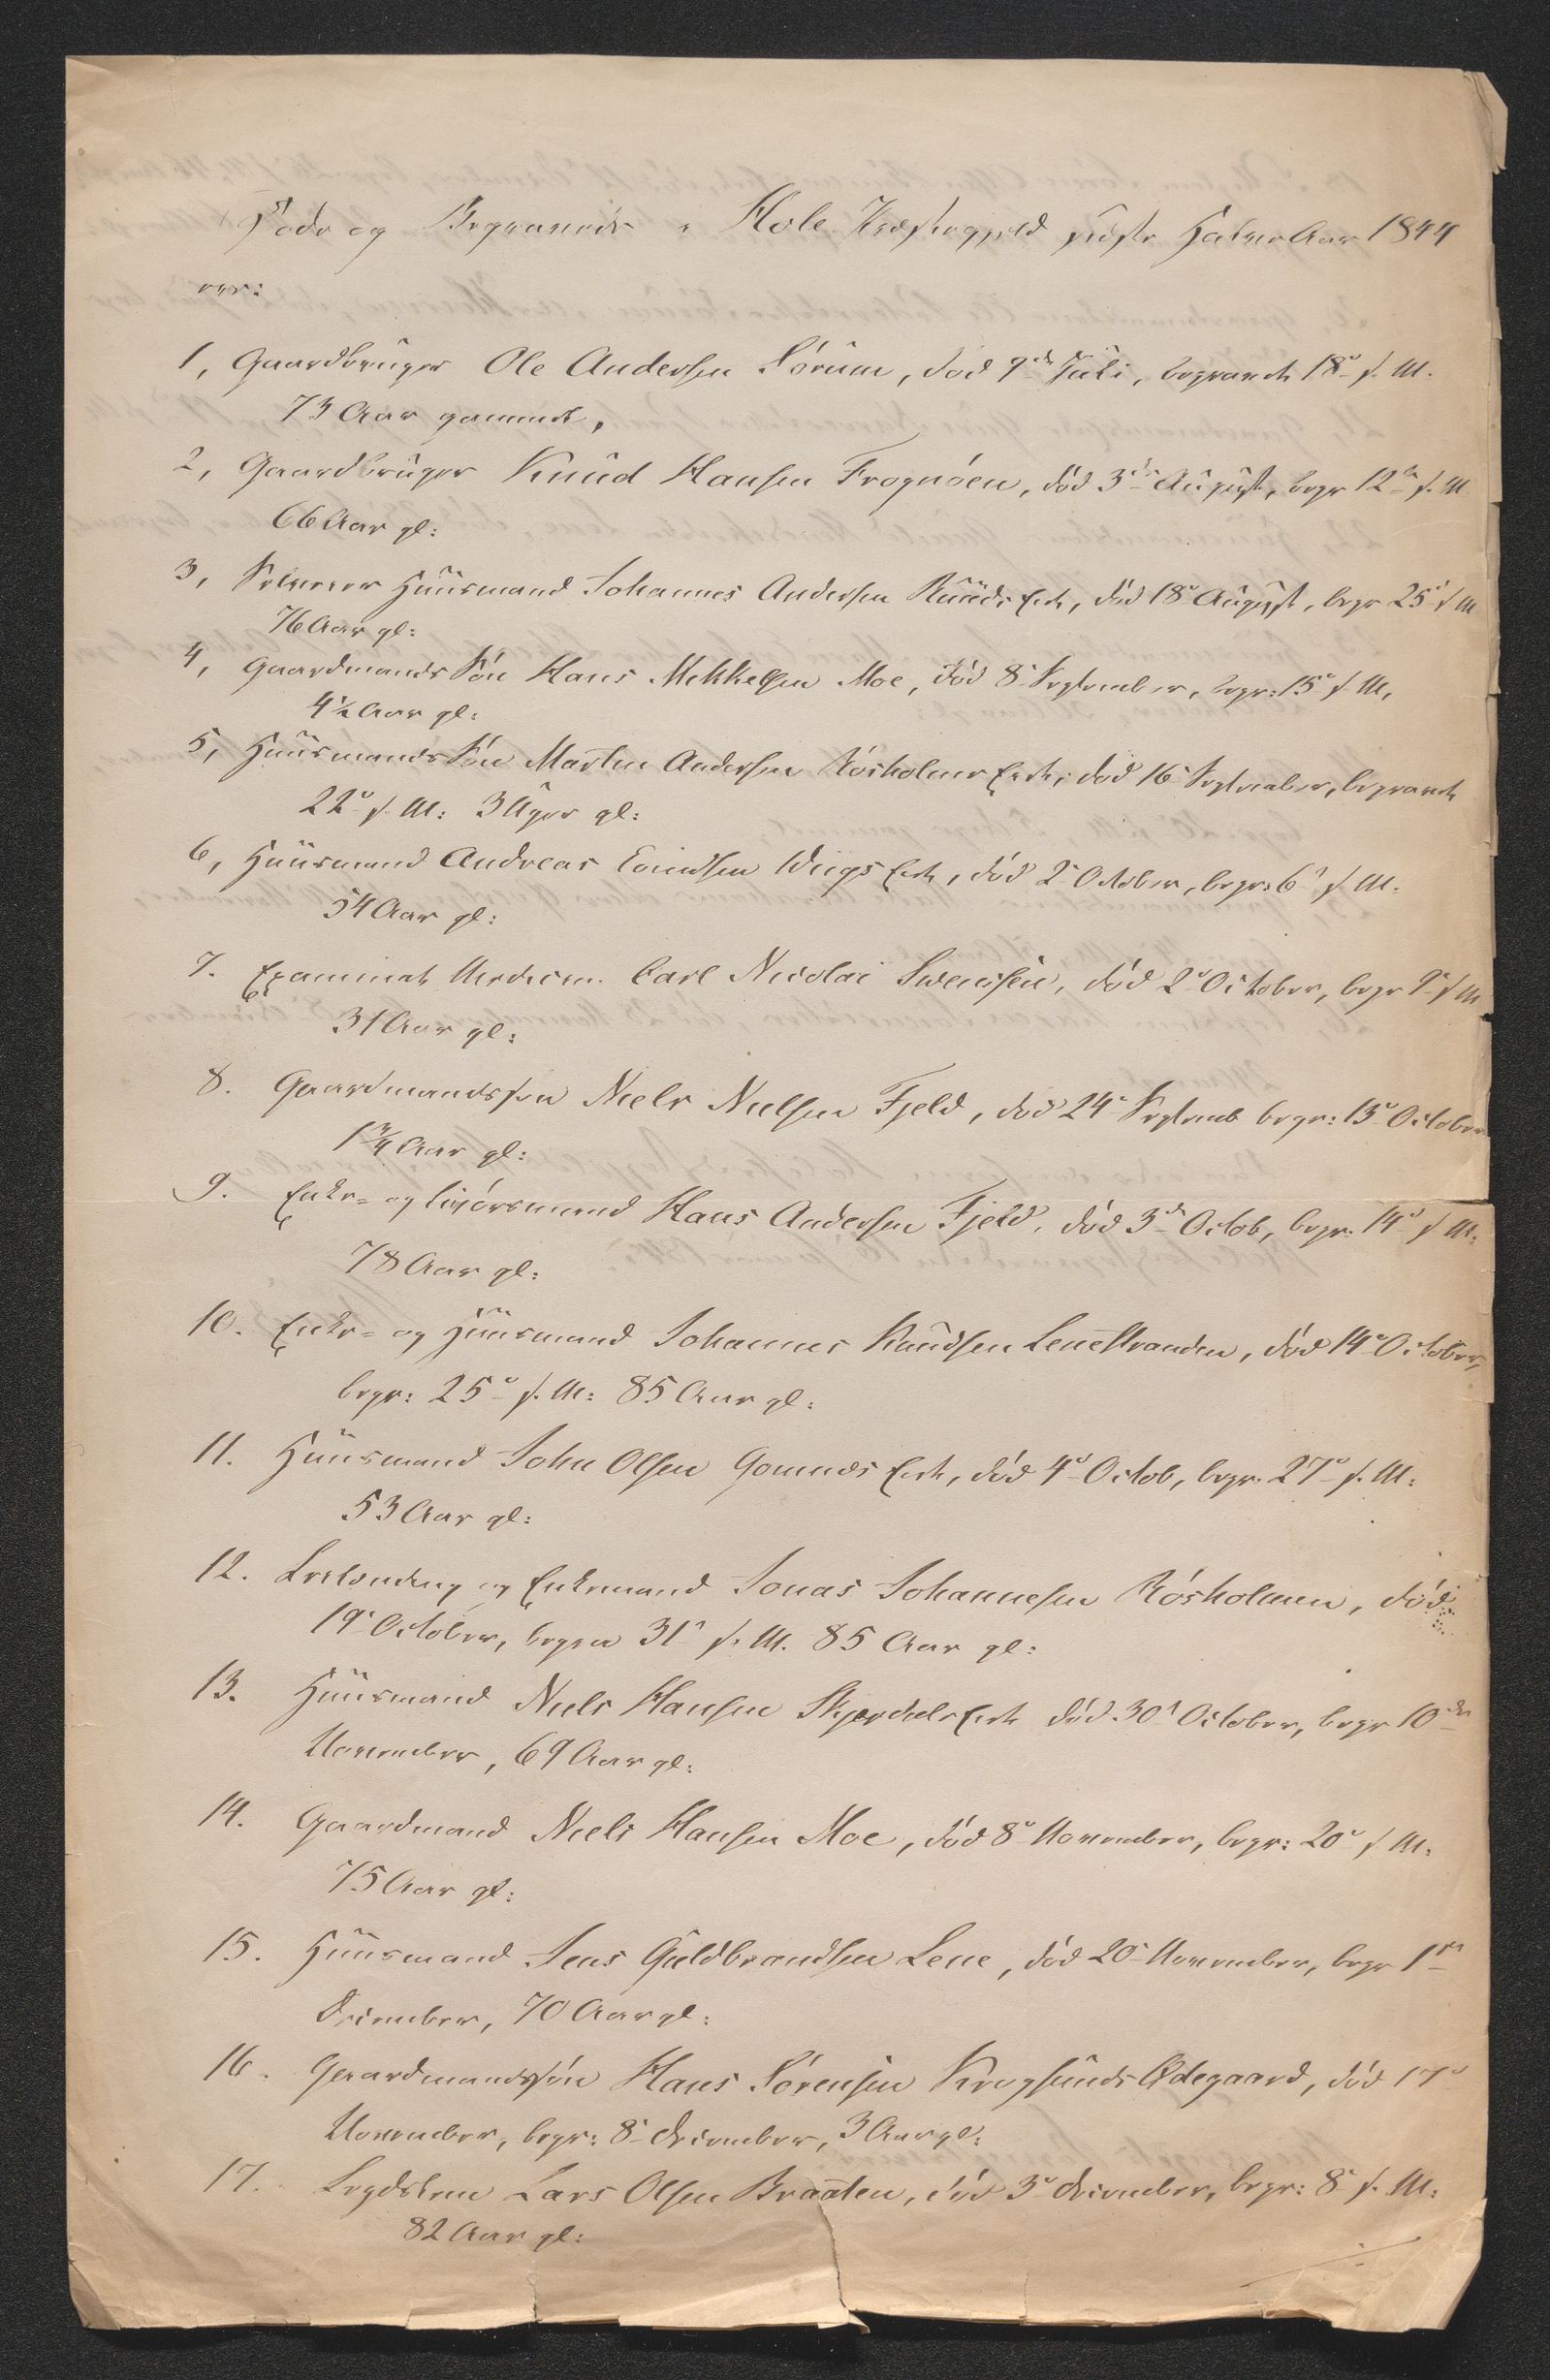 Døde og Begravede i Hole Præstegjeld sidste Halve Aar 1844
ere:
1, Gaardbruger Ole Andersen Sørum, død 9de Juli, begravet 18e s. M.
73 Aar gammel,
2, Gaardbruger Knud Hansen Frognøen, død 3die August, begr 12te s. M
66 Aar gl:
3, Huusmand Johannes Andersen Ruuds Eie, død 18e August, begr 25e s M
76 Aar gl:
4, Gaardmands Søn Hans Mikkelsen Moe, død 8e September, begr: 15e s. M,
4½ Aar gl:
5, Huusmands Søn Martin Andersen Røsholmer Eie, død 16e September, begravet
22e s. M: 3 Uger gl:
6, Huusmand Andreas Evindsen Wiigs Eie, død 2e October, begr: 6e s. M:
54 Aar gl:
7. Examinat Carl Nicolai Swensen, død 2e October, begr 9e s M
31 Aar gl:
8. Gaardmandssøn Niels Nielsen Fjeld, død 24e Septemb begr: 13e October
1¾ Aar gl:
9. Enke- og Hans Andersen Fjeld, død 3die Octob, begr. 14e s M:
78 Aar gl:
10. Enke- og Huusmand Johannes Knudsen Lenestranden, død 14e October,
begr: 25e s. M: 85 Aar gl:
11. Huusmand John Olsen Gomnæs Eie, død 4e Octob, begr. 27e s. M:
53 Aar gl:
12. og Enkemand Jonas Johannesen Røsholmen, død
19e October, begra 31e s. M. 85 Aar gl:
13. Huusmand Niels Hansen Skjærdals Eie død 30e October, begr 10de
November, 69 Aar gl:
14. Gaardmand Niels Hansen Moe, død 8e November, begr: 20e s M:
75 Aar gl:
15. Huusmand Jens Guldbrandsen Lene, død 20e November, begr 1ste
December, 70 Aar gl:
16. Gaardmandssøn Hans Sørensen Krogsunds Ødegaard, død 17e
November, begr: 8e December, 3 Aar gl:
17. Lægdslem Lars Olsen Braaten, død 3e December, begr: 8e s. M:
82 Aar gl: